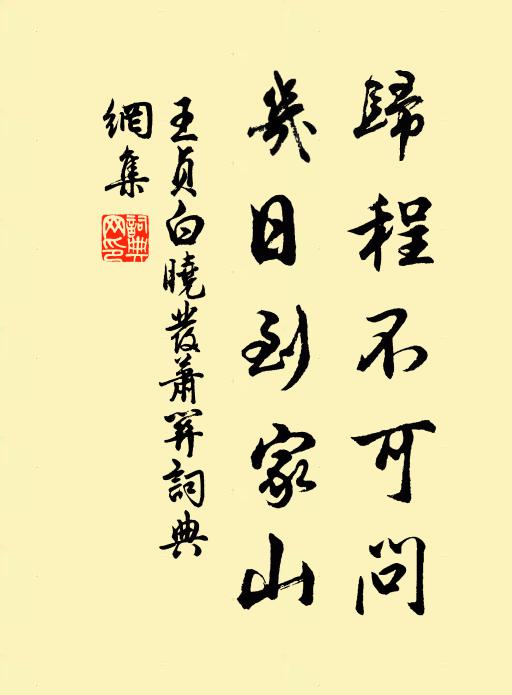 歸程不可問
幾日到家山
王貞白曉發蕭關詞典
網集
詞典
网印